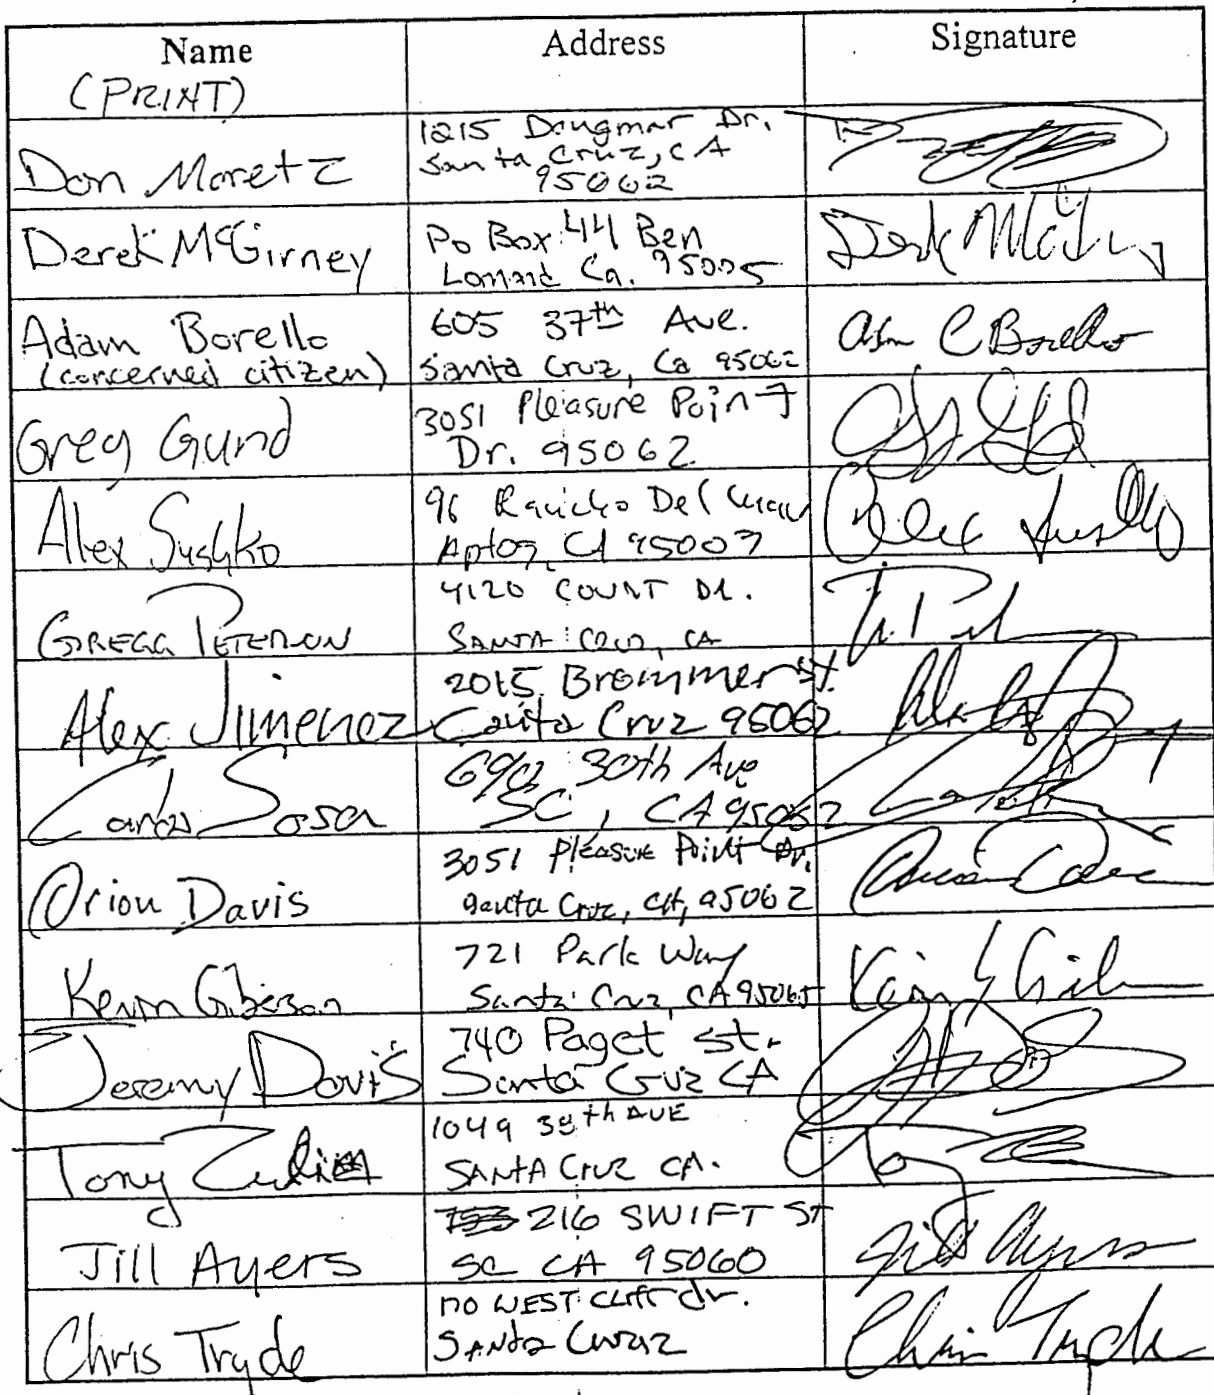 Name Address Signature
(PRINT)
Don Moretz
1215 Dougmar Dr.
Santa Cruz, CA
95062
Derek McGirney
Po Box 44 Ben
Lomand Ca. 95005
Derek
Adam Borello
(concerned citizen)
605 37th Ave.
Santa Cruz, Ca 95062
C Borello
Greg Gund
3051 Pleasure Point
Dr. 95062
Alex Sushko
96 Rancho Del Mar
Aptos, CA 95003
Alex
GREGG PETERSON
4120 COURT DR.
SANTA CRUZ, CA
Alex Jimenez
2015 Brommer St.
Santa Cruz 95062
Carlos Sosa
30th Ave
SC, CA 95062
Orion Davis
3051 Pleasure Point Dr.
Santa Cruz, CA, 95062
Kevin Giberson
721 Park Way
Santa Cruz, CA 95065
Jeremy Davis
740 Paget St.
Santa Cruz CA
Tony
1049 38th AVE
SANTA CRUZ CA.
Tony
Jill Ayers
216 SWIFT ST
SC CA 95060
Jill Ayers
Chris Tryde
WEST CLIFF dr.
SANTA Cruz
Chris Tryde